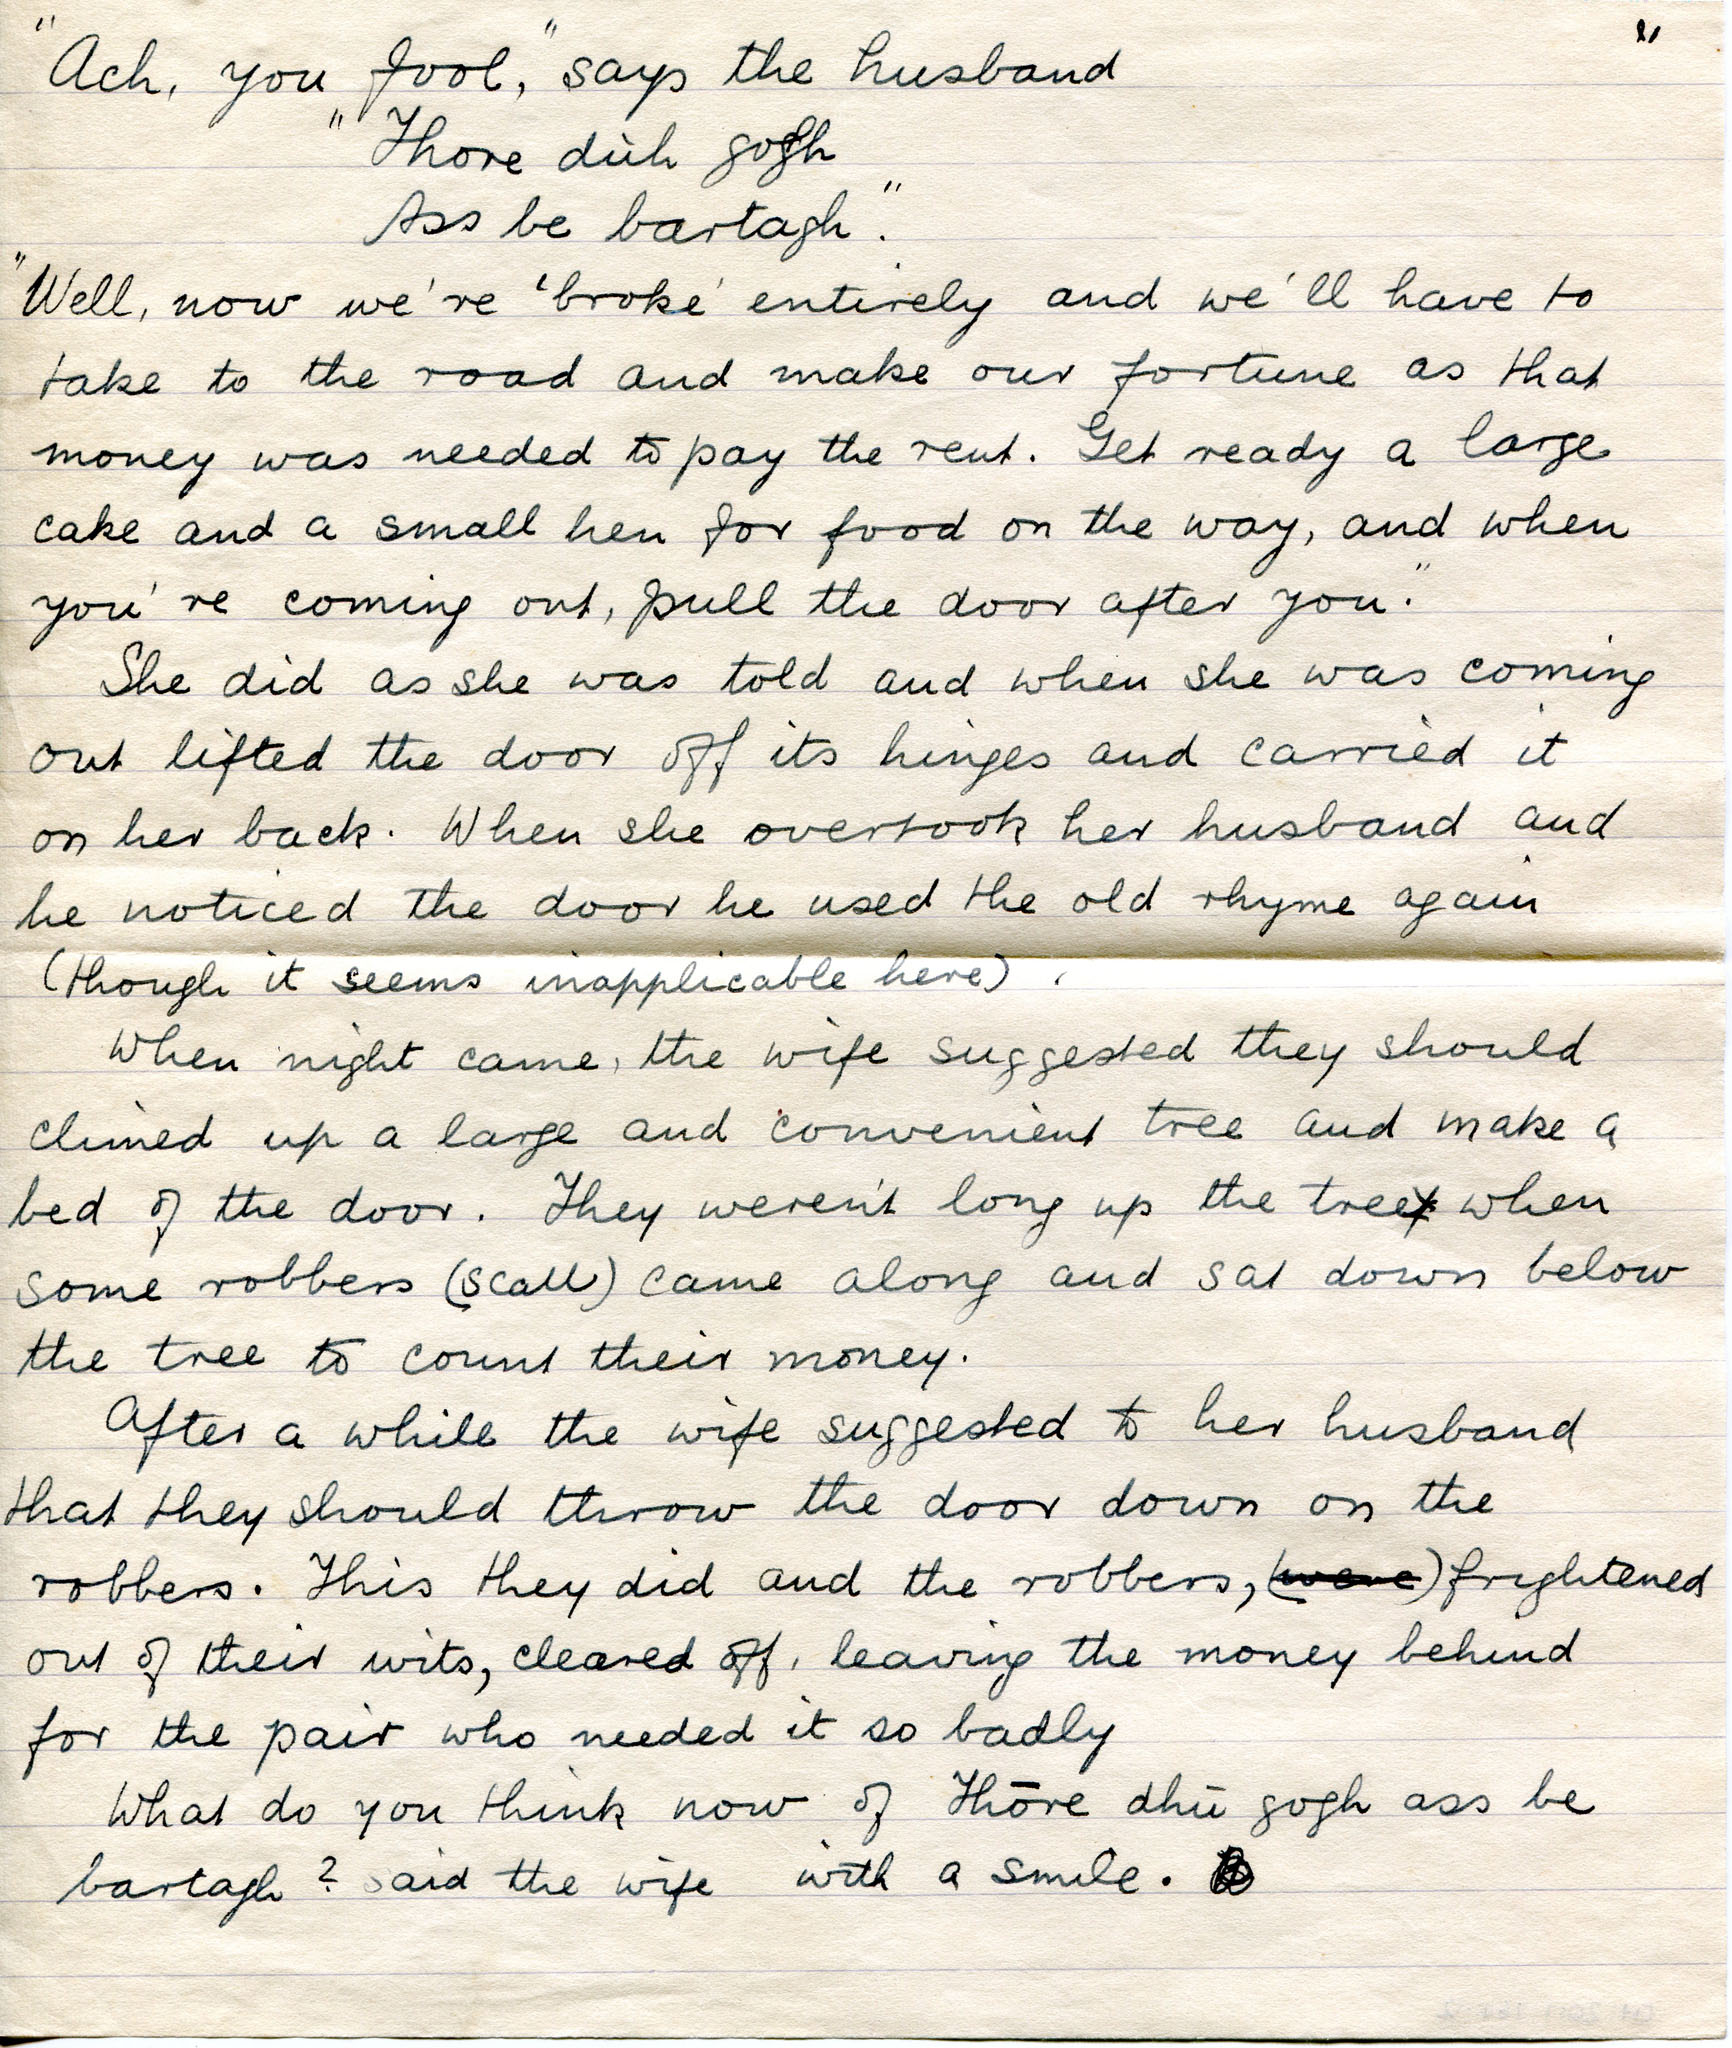 "Ach, you fool," says the husband "
"Thore dùh gogh
Ass be bartagh".
"Well, now we're 'broke' entirely and we'll have to
take to the road and make our fortune as that
money was needed to pay the rent. Get ready a large
cake and a small hen for food on the way, and when
you're coming out, pull the door after you."
She did as she was told and when she was coming
out lifted the door off its hinges and carried it
on her back. When she overtook her husband and
he noticed the door he used the old rhyme again
(though it seems inapplicable here).
When night came, the wife suggested they should
climed up a large and convenient tree and make a
bed of the door. They weren't long up the tree when
some robbers (scall) came along and sat down below
the tree to count their money.
After a while the wife suggested to her husband
that they should throw the door down on the
robbers. This they did and the robbers, (were) frightened
out of their wits, cleared off, leaving the money behind
for the pair who needed it so badly
What do you think now of Thōre dhū gogh ass be
bartagh? said the wife with a smile.